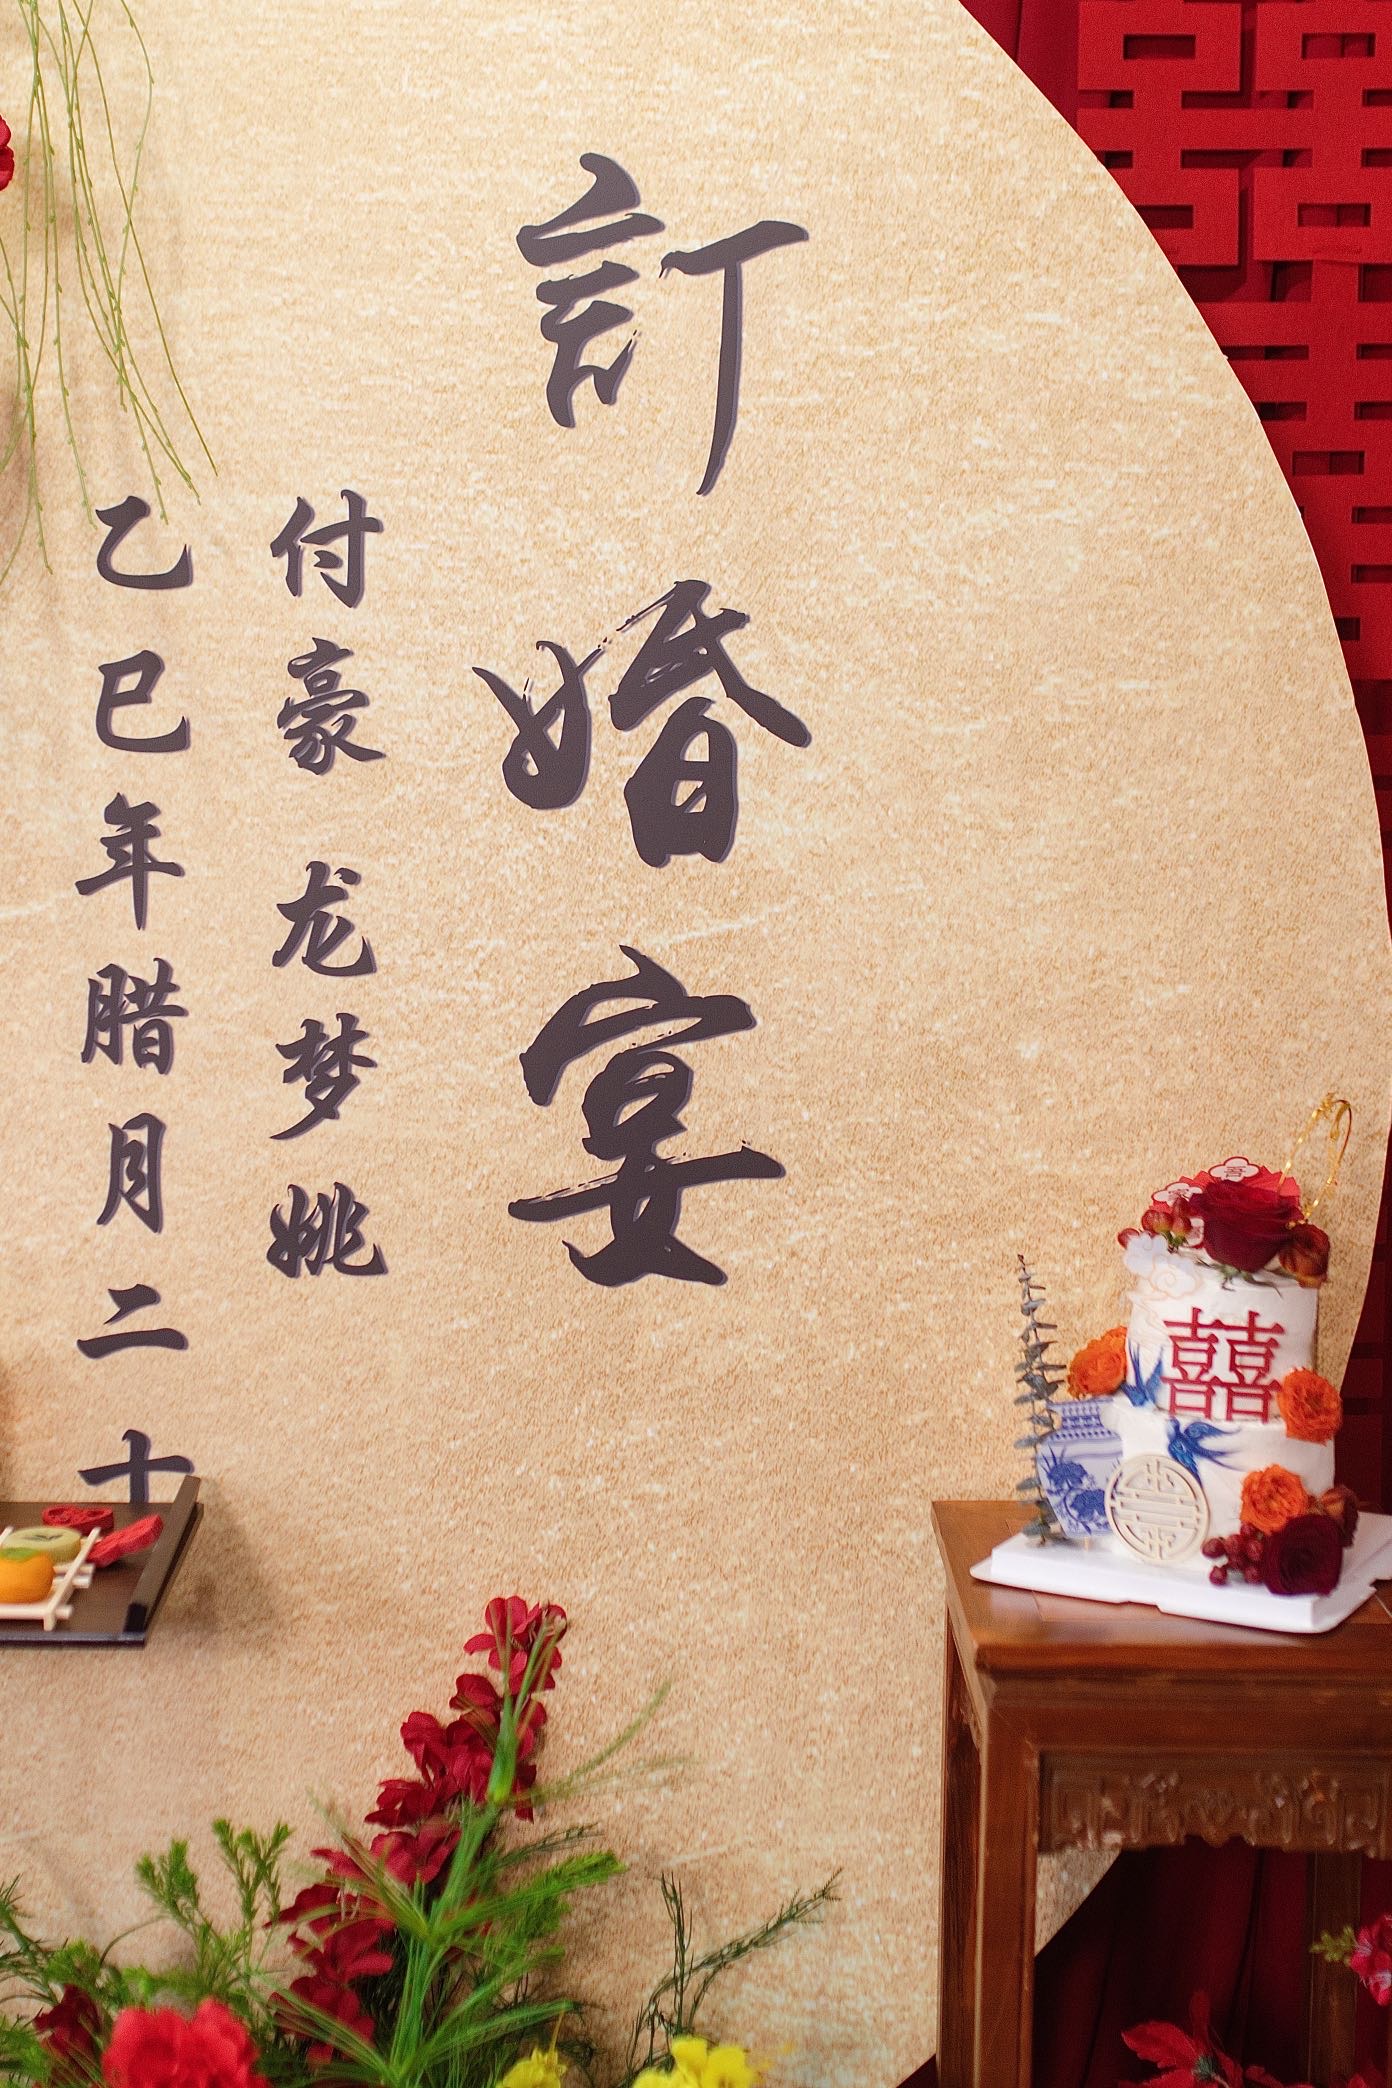 訂婚宴
付豪 龙梦姚
乙巳年腊月二十
囍